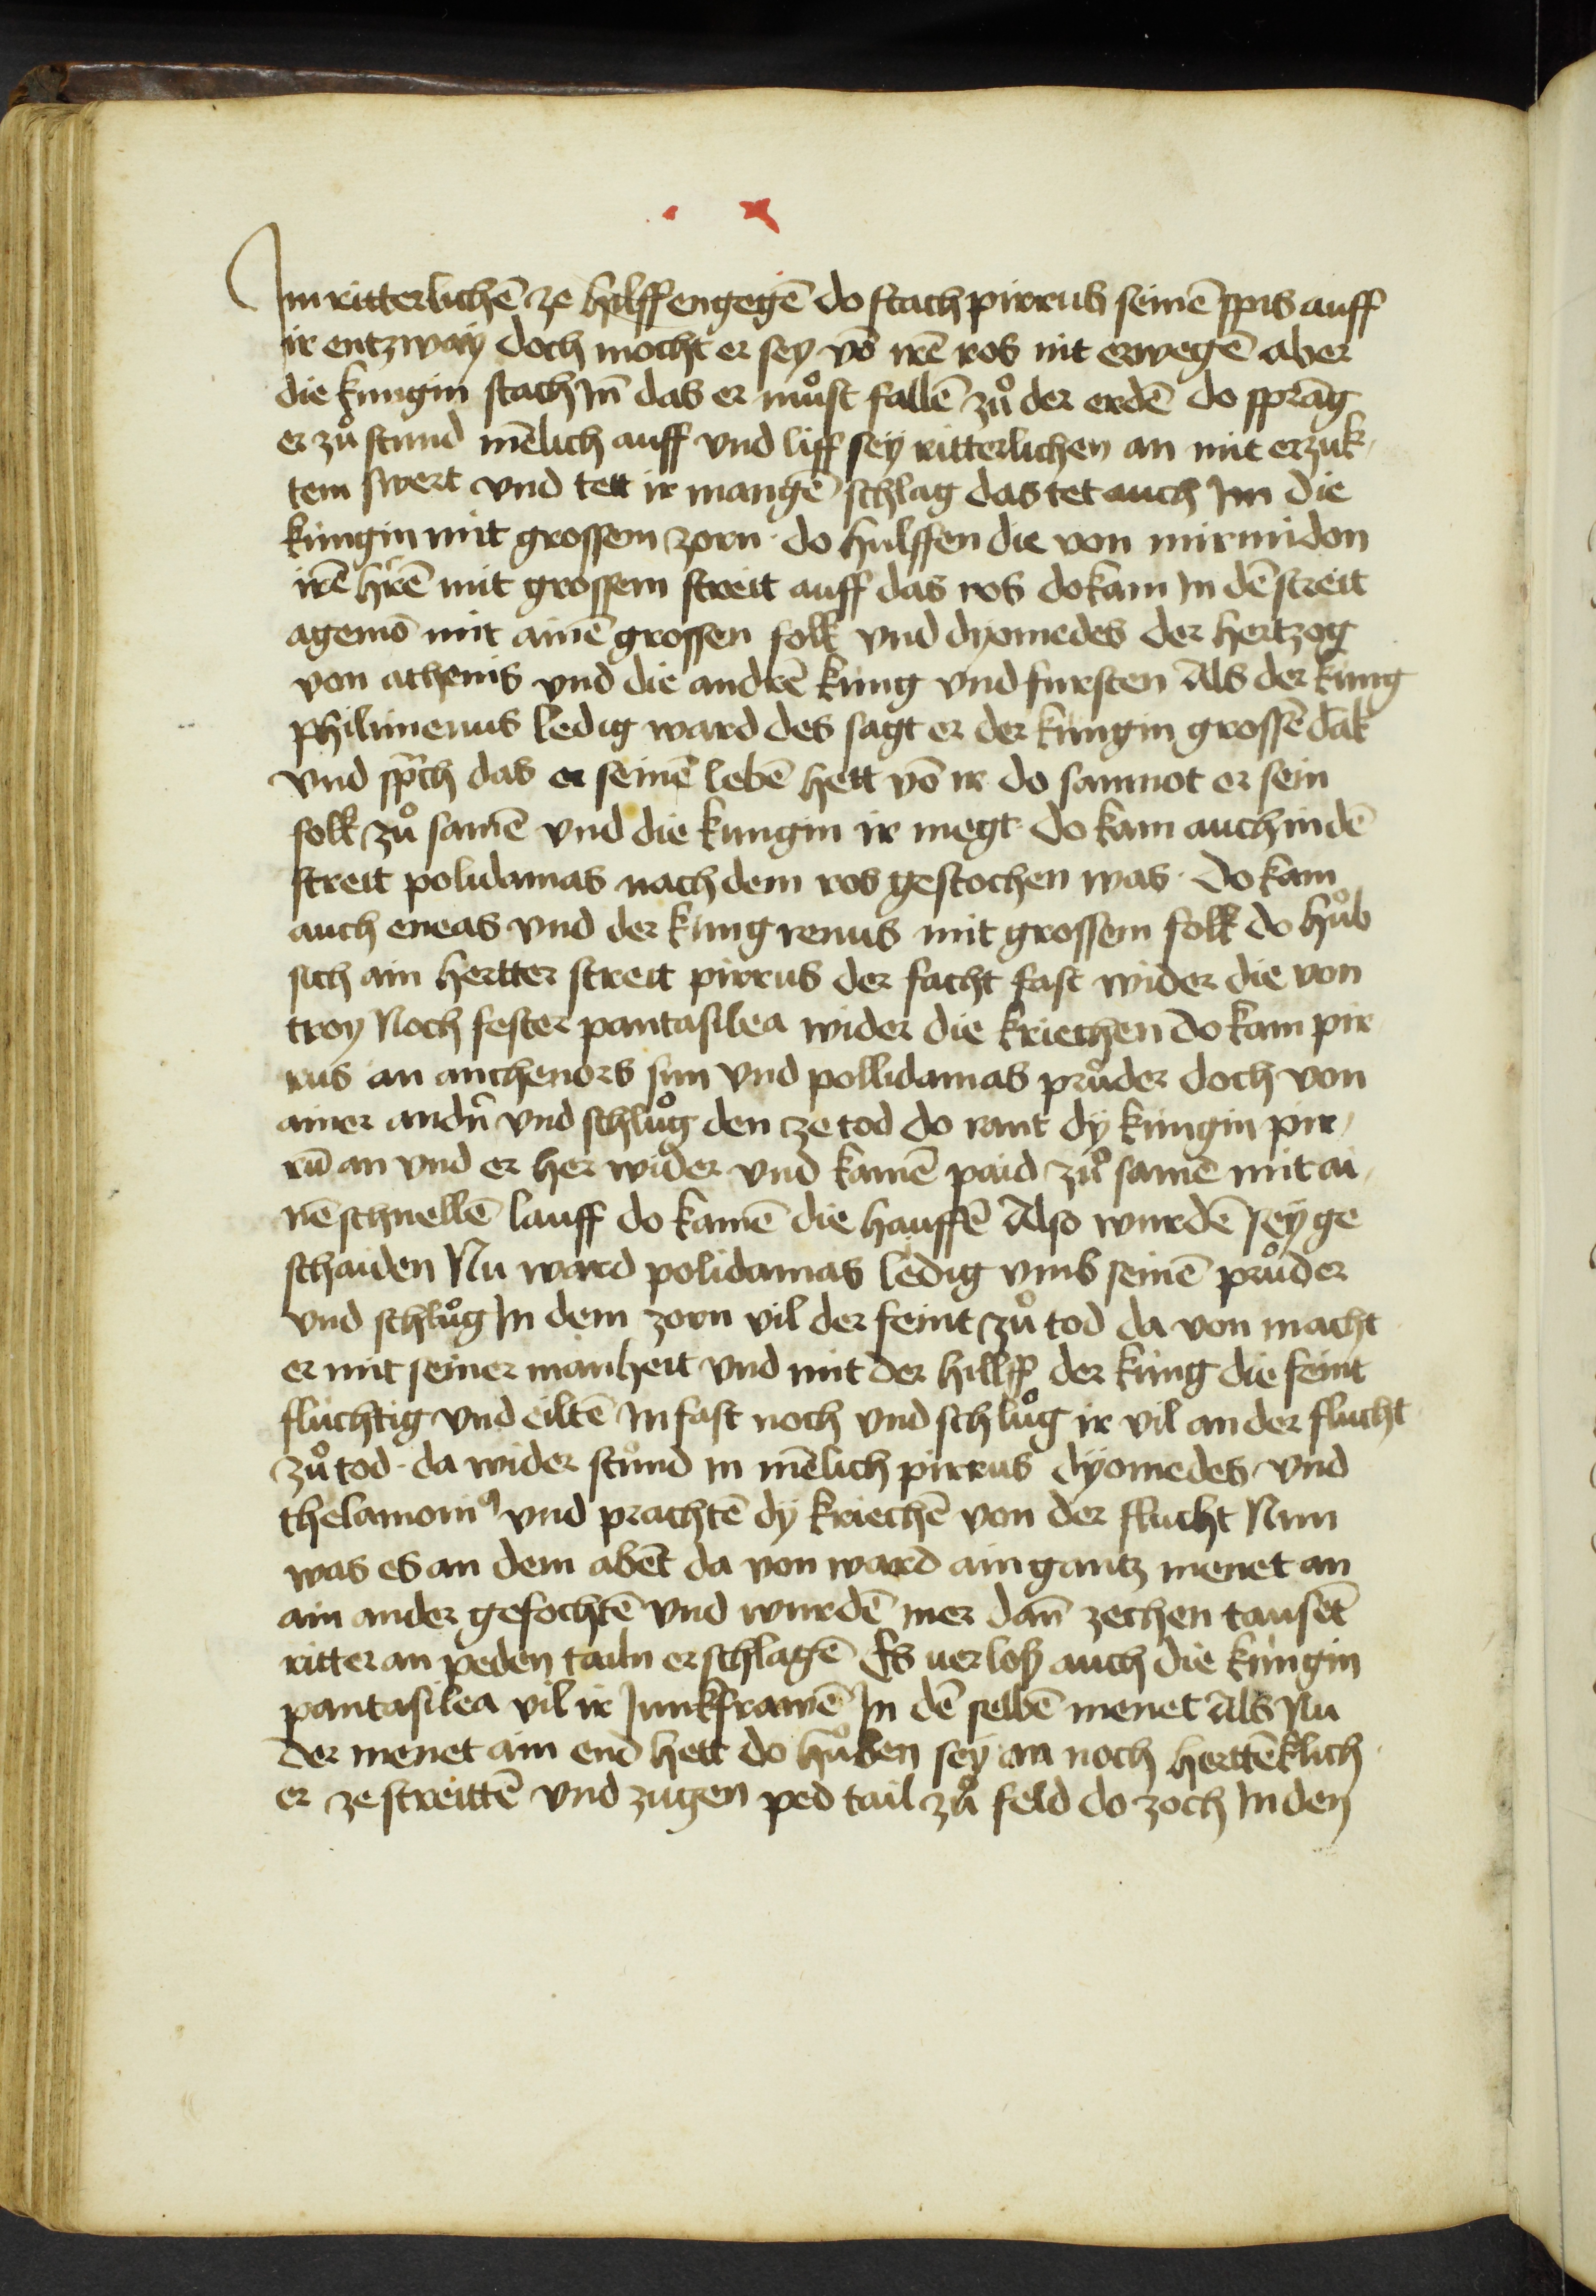 Im ritterlichē ze hilff engegē do stach pirrus seinē spis auff
ir entzway doch mocht er sey vō irē ros nit erwegē aber
die kungin stach Jn̄ das er můst fallē zů der erdē do sprāg
er zů stund mēlich auff vnd liff sey ritterlichen an mit erzuk-
tem swert vnd tett ir mangē schlag das tet auch Jm die
kungin mit grossem zorn · do hulffen die von mirmidon
irē hr̄ē mit grossem streit auff das ros do kam In dē streit
agemō mit ainē grossen folk vnd dyomedes der hertzog
von athenis vnd die andrē kung vnd fursten Als der kung
philimenus ledig ward des sagt er der kungin grossē dāk
vnd spͣch das er seinē lebē hett vō ir do samnot er sein
folk zů samē vnd die kungin ir megt do kam auch in dē
streit polidamas nach dem ros gestochen was · do kam
auch eneas vnd der kung remus mit grossem folk do hůb
sich ain hertter streit pirrus der facht fast wider die von
troy Noch fester pantasilea wider die kriechen do kam pir
rus an anthenors sun vnd pollidamas průder doch von
ainer andn̄ vnd schlůg den ze tod do rant dy kungin pir-
rū an vnd er her wider vnd kamē paid zů samē mit ai-
nē schnellē lauff do kamē die hauffē Also wurdē sey ge
schaiden Nu ward polidamas ledig vmb seinē průder
vnd schlůg In dem zorn vil der feint zů tod da von macht
er mit seiner manheit vnd mit der hillff der kung die feint
fluchtig vnd eiltē In fast noch vnd schlůg ir vil an der flucht
zů tod · da wider stůnd in mēlich pirrus dyomedes vnd
thelamoniꝰ vnd prachtē dy kriechē von der flucht Nun
was es an dem abēt da von ward ain gantz menet an
ain ander gefochtē vnd wurdē mer dan̄ zechen tausēt
ritter an peden tailn erschlagē Es uerloß auch die kungin
pantasilea vil ir Junkfrawē In dē selbē menet Als Nu
der menet ain end hett do hůben sey an noch herttēklich
er ze streittē vnd zugen ped tail zů feld do zoch In den